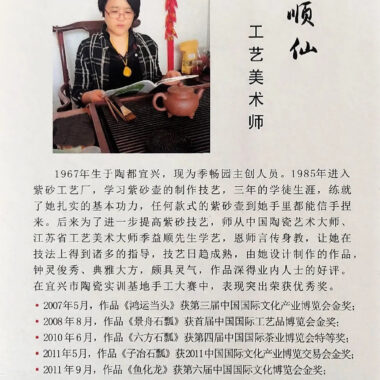 顺仙
工艺美术师
1967年生于陶都宜兴，现为季畅园主创人员。1985年进入
紫砂工艺厂，学习紫砂壶的制作技艺，三年的学徒生涯，练就
了她扎实的基本功力，任何款式的紫砂壶到她手里都能信手捏
来。后来为了进一步提高紫砂技艺，师从中国陶瓷艺术大师、
江苏省工艺美术大师季益顺先生学艺，恩师言传身教，让她在
技法上得到诸多的指导，技艺日趋成熟，由她设计制作的作品，
钟灵俊秀、典雅大方，颇具灵气，作品深得业内人士的好评。
在宜兴市陶瓷实训基地手工大赛中，表现突出荣获优秀奖。
•2007年5月，作品《鸿运当头》获第三届中国国际文化产业博览会金奖;
•2008年8月，作品《景舟石瓢》获首届中国国际工艺品博览会金奖;
•2010年6月，作品《六方石瓢》获第四届中国国际茶业博览会特等奖;
•2011年5月，作品《子冶石瓢》获2011中国国际文化产业博览交易会金奖;
•2011年9月，作品《鱼化龙》获第六届中国国际文化博览会金奖。